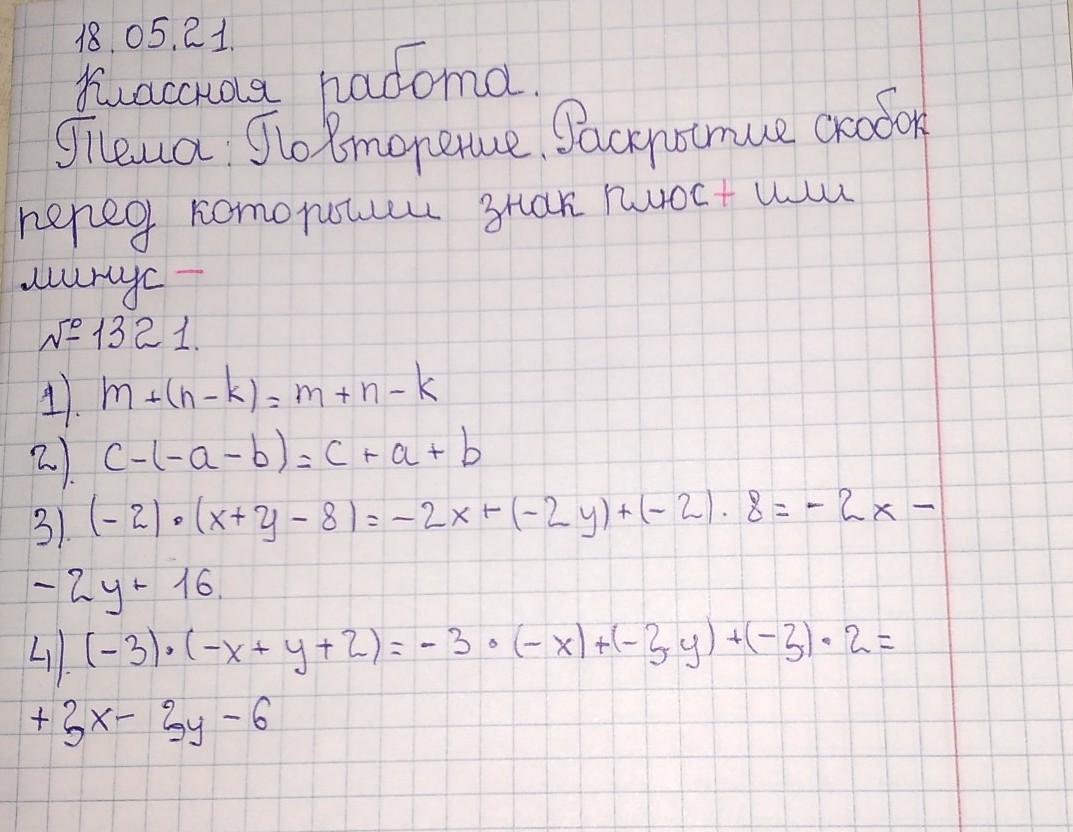 18.05.21.
Классная работа.
Тема: Повторение. Раскрытие скобок
перед которыми знак плюс + или
минус -
№ 1321.
1). m+(n-k)=m+n-k
2). c-(-a-b)=c+a+b
3). (-2)•(x+y-8)=-2x+(-2y)+(-2)·8=-2x-
-2y+16.
4). (-3)•(-x+y+2)=-3•(-x)+(-3y)+(-3)•2=
+3x-3y-6